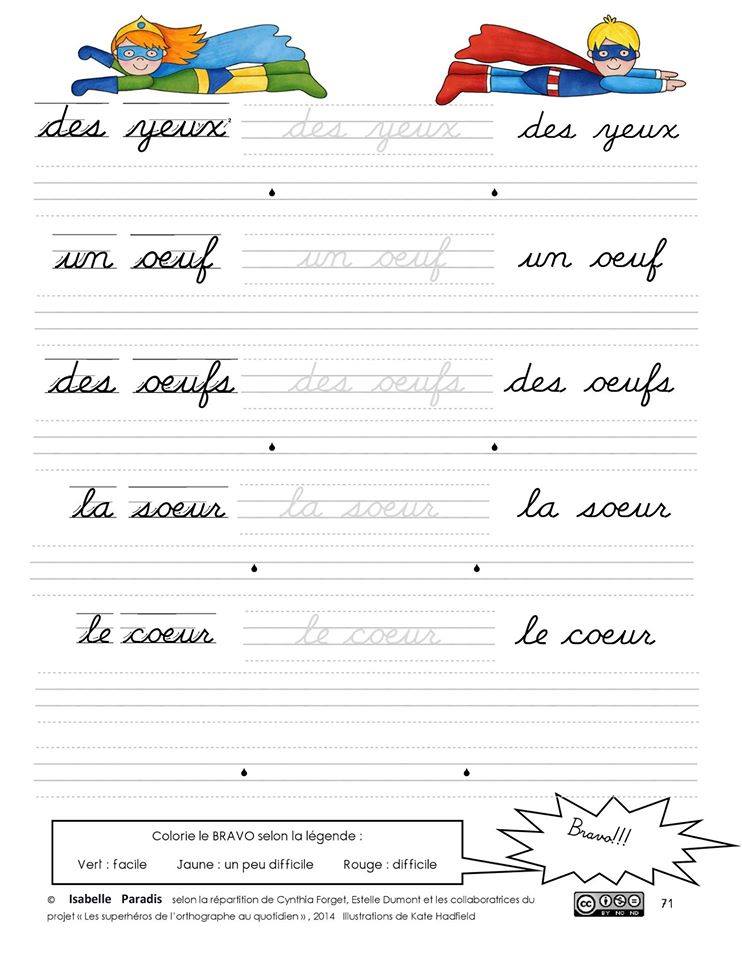 des yeux des yeux des yeux
un oeuf un oeuf un oeuf
des oeufs des oeufs des oeufs
la soeur la soeur la soeur
le coeur le coeur le coeur
Bravo!!!
Colorie le BRAVO selon la légende :
Vert : facile Jaune : un peu difficile Rouge : difficile
© Isabelle Paradis selon la répartition de Cynthia Forget, Estelle Dumont et les collaboratrices du
projet « Les superhéros de l'orthographe au quotidien » , 2014 Illustrations de Kate Hadfield
CC BY NC ND
71